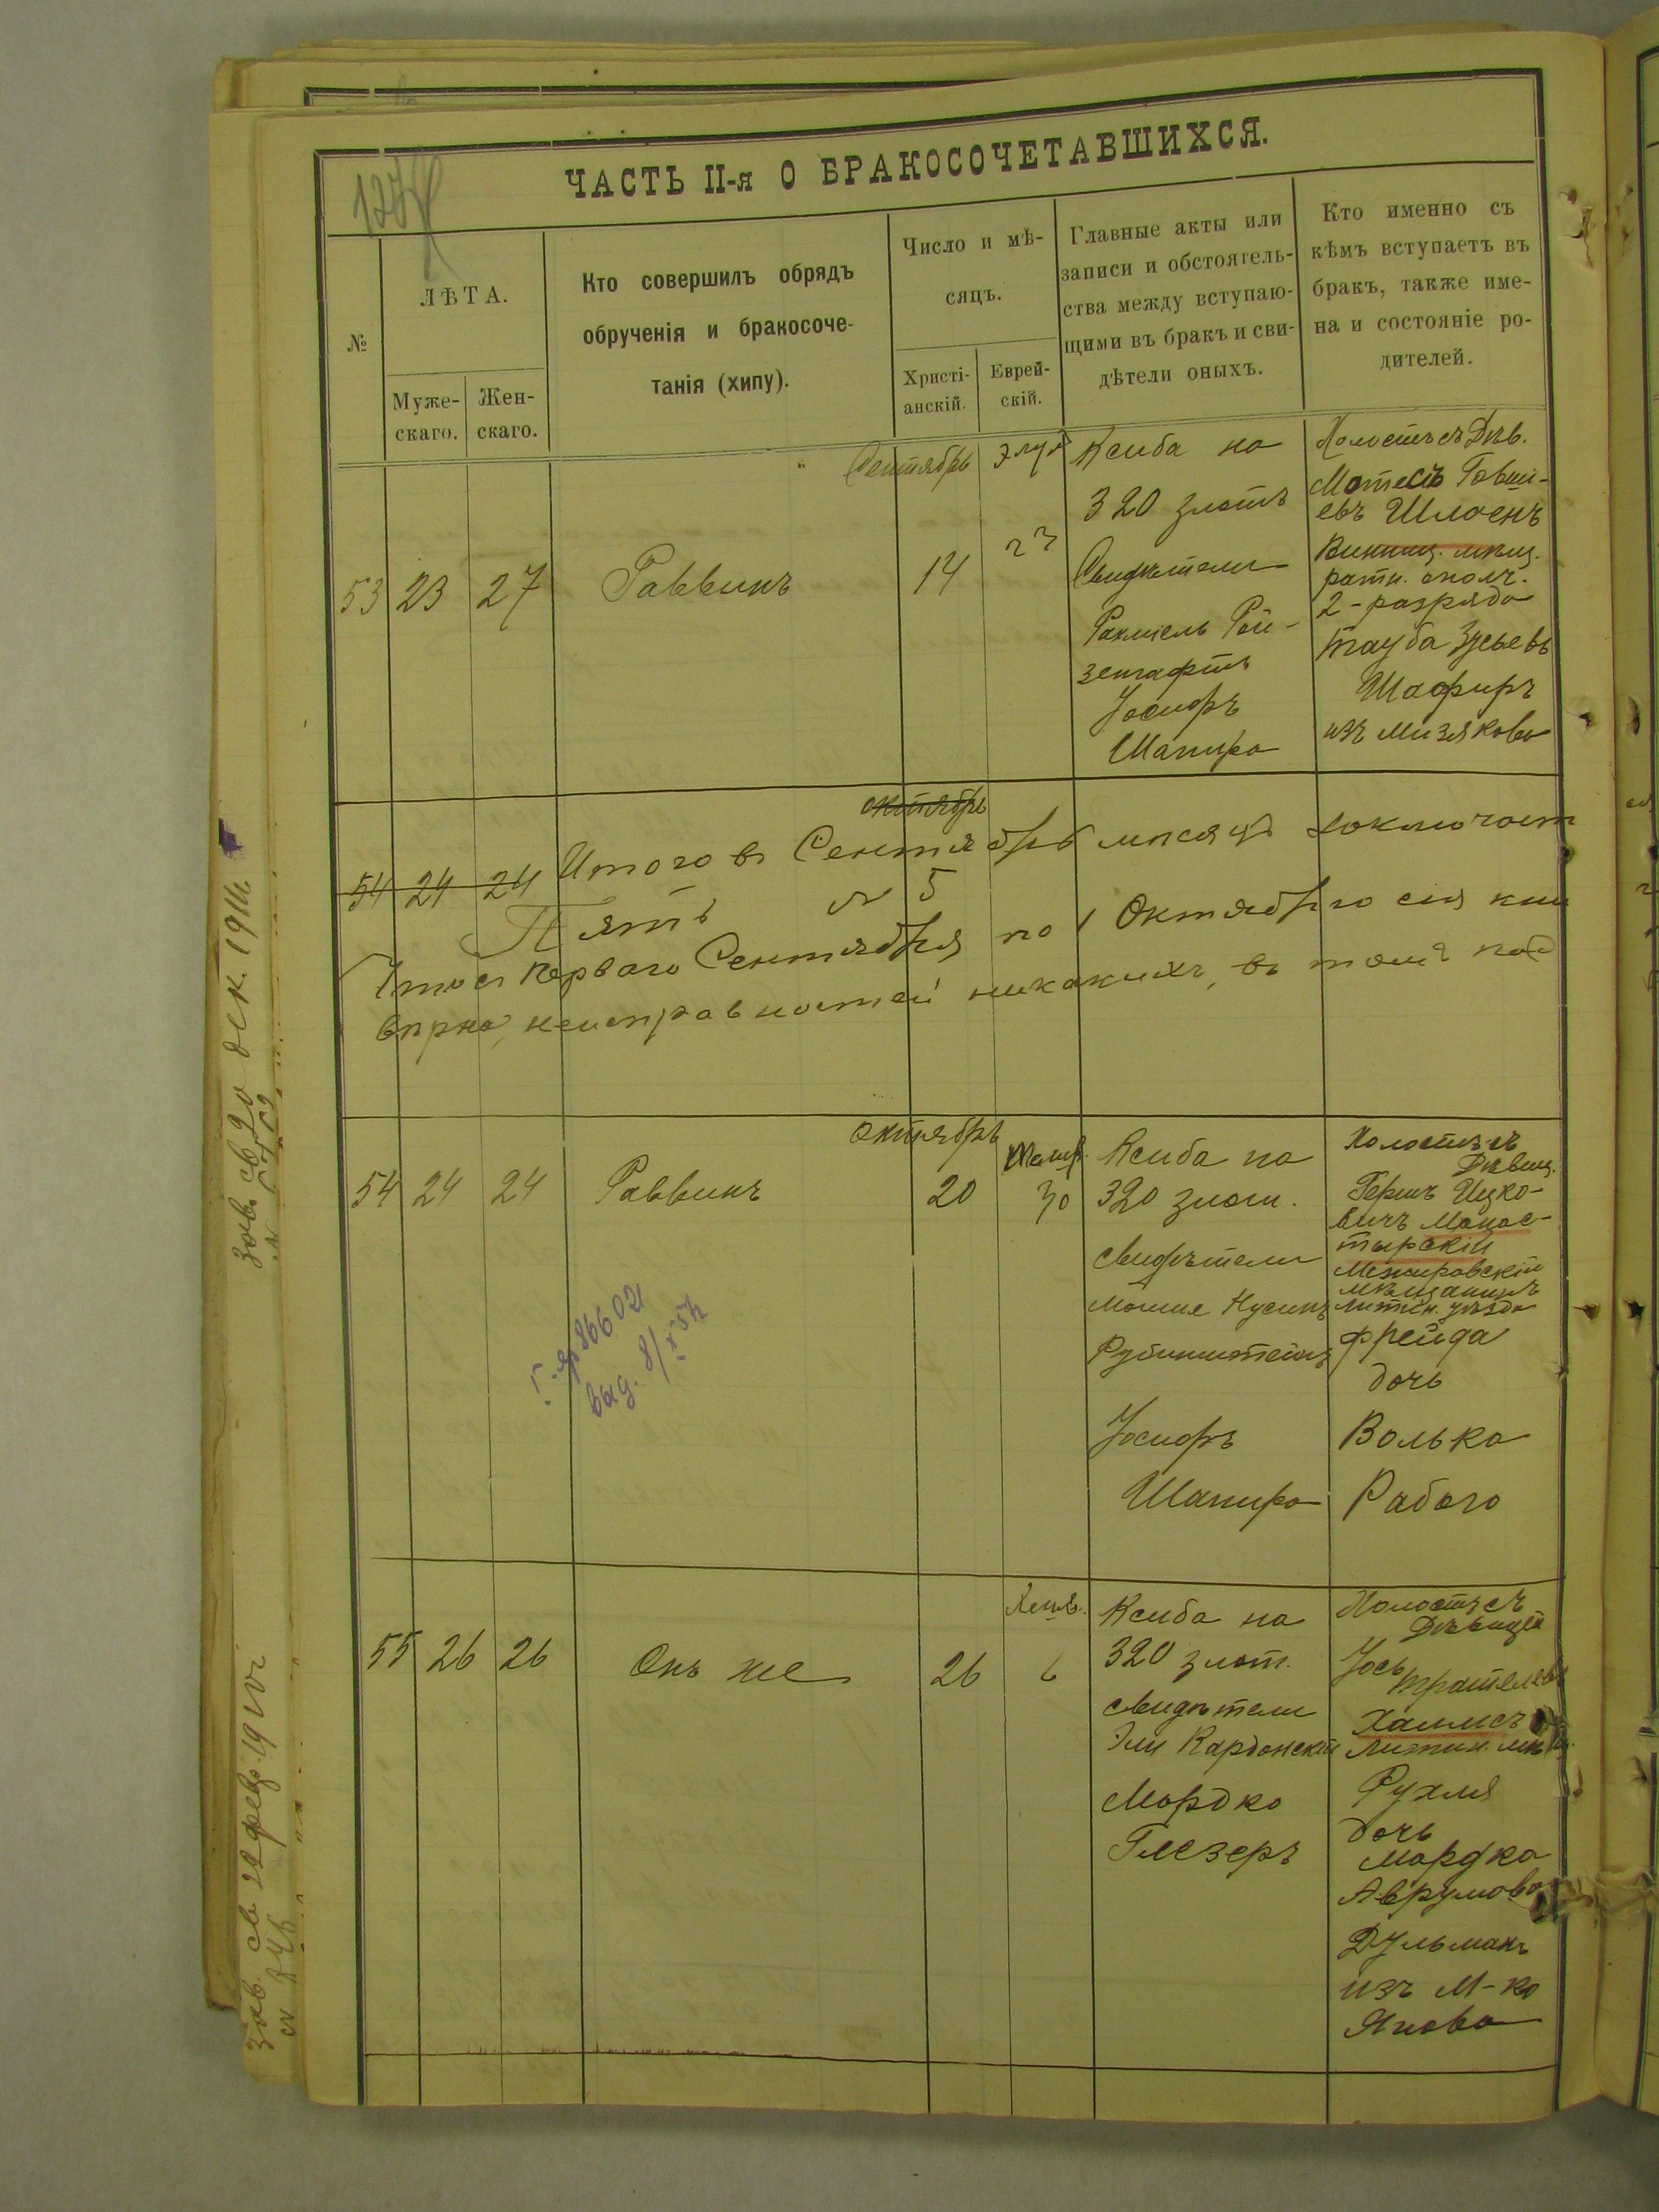 ЧАСТЬ II-я О БРАКОСОЧЕТАВШИХСЯ.
№
ЛѢТА.
Муже-
скаго.
Жен-
скаго.
Кто совершилъ обрядъ
обрученія и бракосоче-
танія (хипу).
Число и мѣ-
сяцъ.
Христі-
анскій.
Еврей-
скій.
Главные акты или
записи и обстоятель-
ства между вступаю-
щими въ бракъ и сви-
дѣтели оныхъ.
Кто именно съ
кѣмъ вступаетъ въ
бракъ, также име-
на и состояніе ро-
дителей.
53 23 27
Раввинъ
Сентябрь
14
Элул
23
Ксиба на
320 злотъ
Свидѣтели
Рахміель Рой-
Іосифъ
Шапиро
Холостъ съ Дѣв.
Мотесъ Говши-
евъ Шлоенъ
Винниц. мѣщ.
ратн. ополч.
2-разряда
Тауба Зусьевъ
Шафиръ
изъ Мизякова
октябрь
54 24 24
Итого въ Сентябрѣ мѣсяцѣ
Пять № 5
Что съ перваго Сентября по 1 Октября сія
вѣрно, неисправностей никакихъ, въ томъ
54 24 24
Раввинъ
Октябрь
20
30
Ксиба на
320 злот.
Свидѣтели
Мошке Нусинъ
Рубинштейнъ
Іосифъ
Шапиро
Холостъ съ
Дѣвиц.
Гершъ Ицко-
вичъ Монас-
тырскій
Межировскій
мѣщанинъ
Литин. уѣзда
Фрейда
дочь
Волька
Рабого
55 26 26
Онъ же
26
6
Ксиба на
320 злот.
свидѣтели
Эли Кардонскій
Мордко
Глезеръ
Холостъ съ
Дѣвицей
Іось
Хаммсъ
Литин. мѣщ.
Рухля
дочь
Мордка
Аврумова
Дульманъ
изъ М-ка
Янова